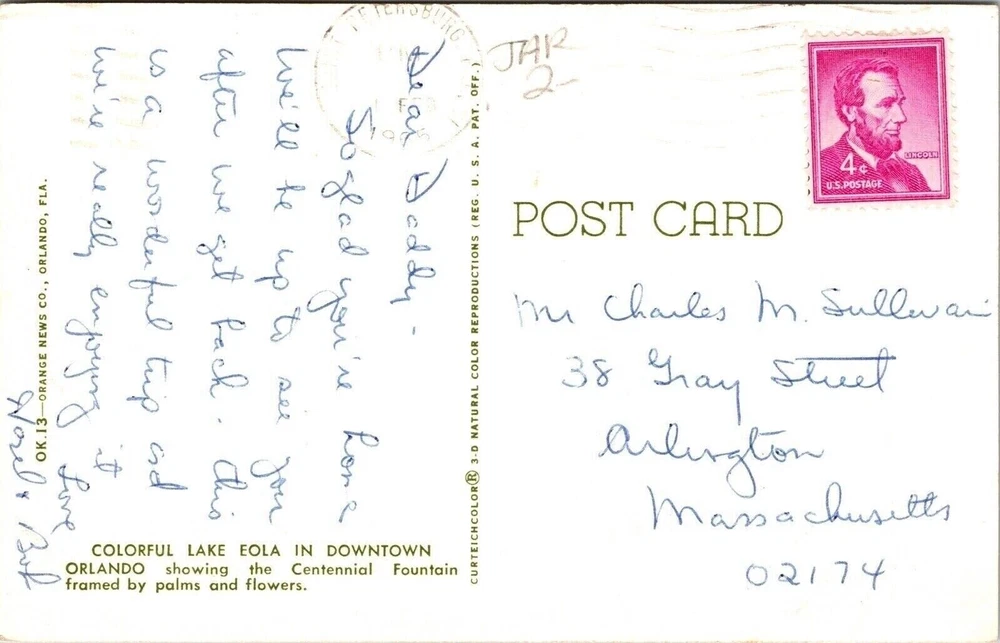 Dear Daddy -
So glad you're home
We'll be up to see you
after we get back. This
is a wonderful trip and
we're really enjoying it
Love
& Bob
OK.13—ORANGE NEWS CO., ORLANDO, FLA.
COLORFUL LAKE EOLA IN DOWNTOWN
ORLANDO showing the Centennial Fountain
framed by palms and flowers.
CURTEICHCOLOR® 3-D NATURAL COLOR REPRODUCTIONS (REG. U. S. A. PAT. OFF.)
PETERSBURG
FEB
JAR
2-
4¢
LINCOLN
U.S. POSTAGE
POST CARD
Mr Charles M. Sullivan
38 Gray Street
Arlington
Massachusetts
02174